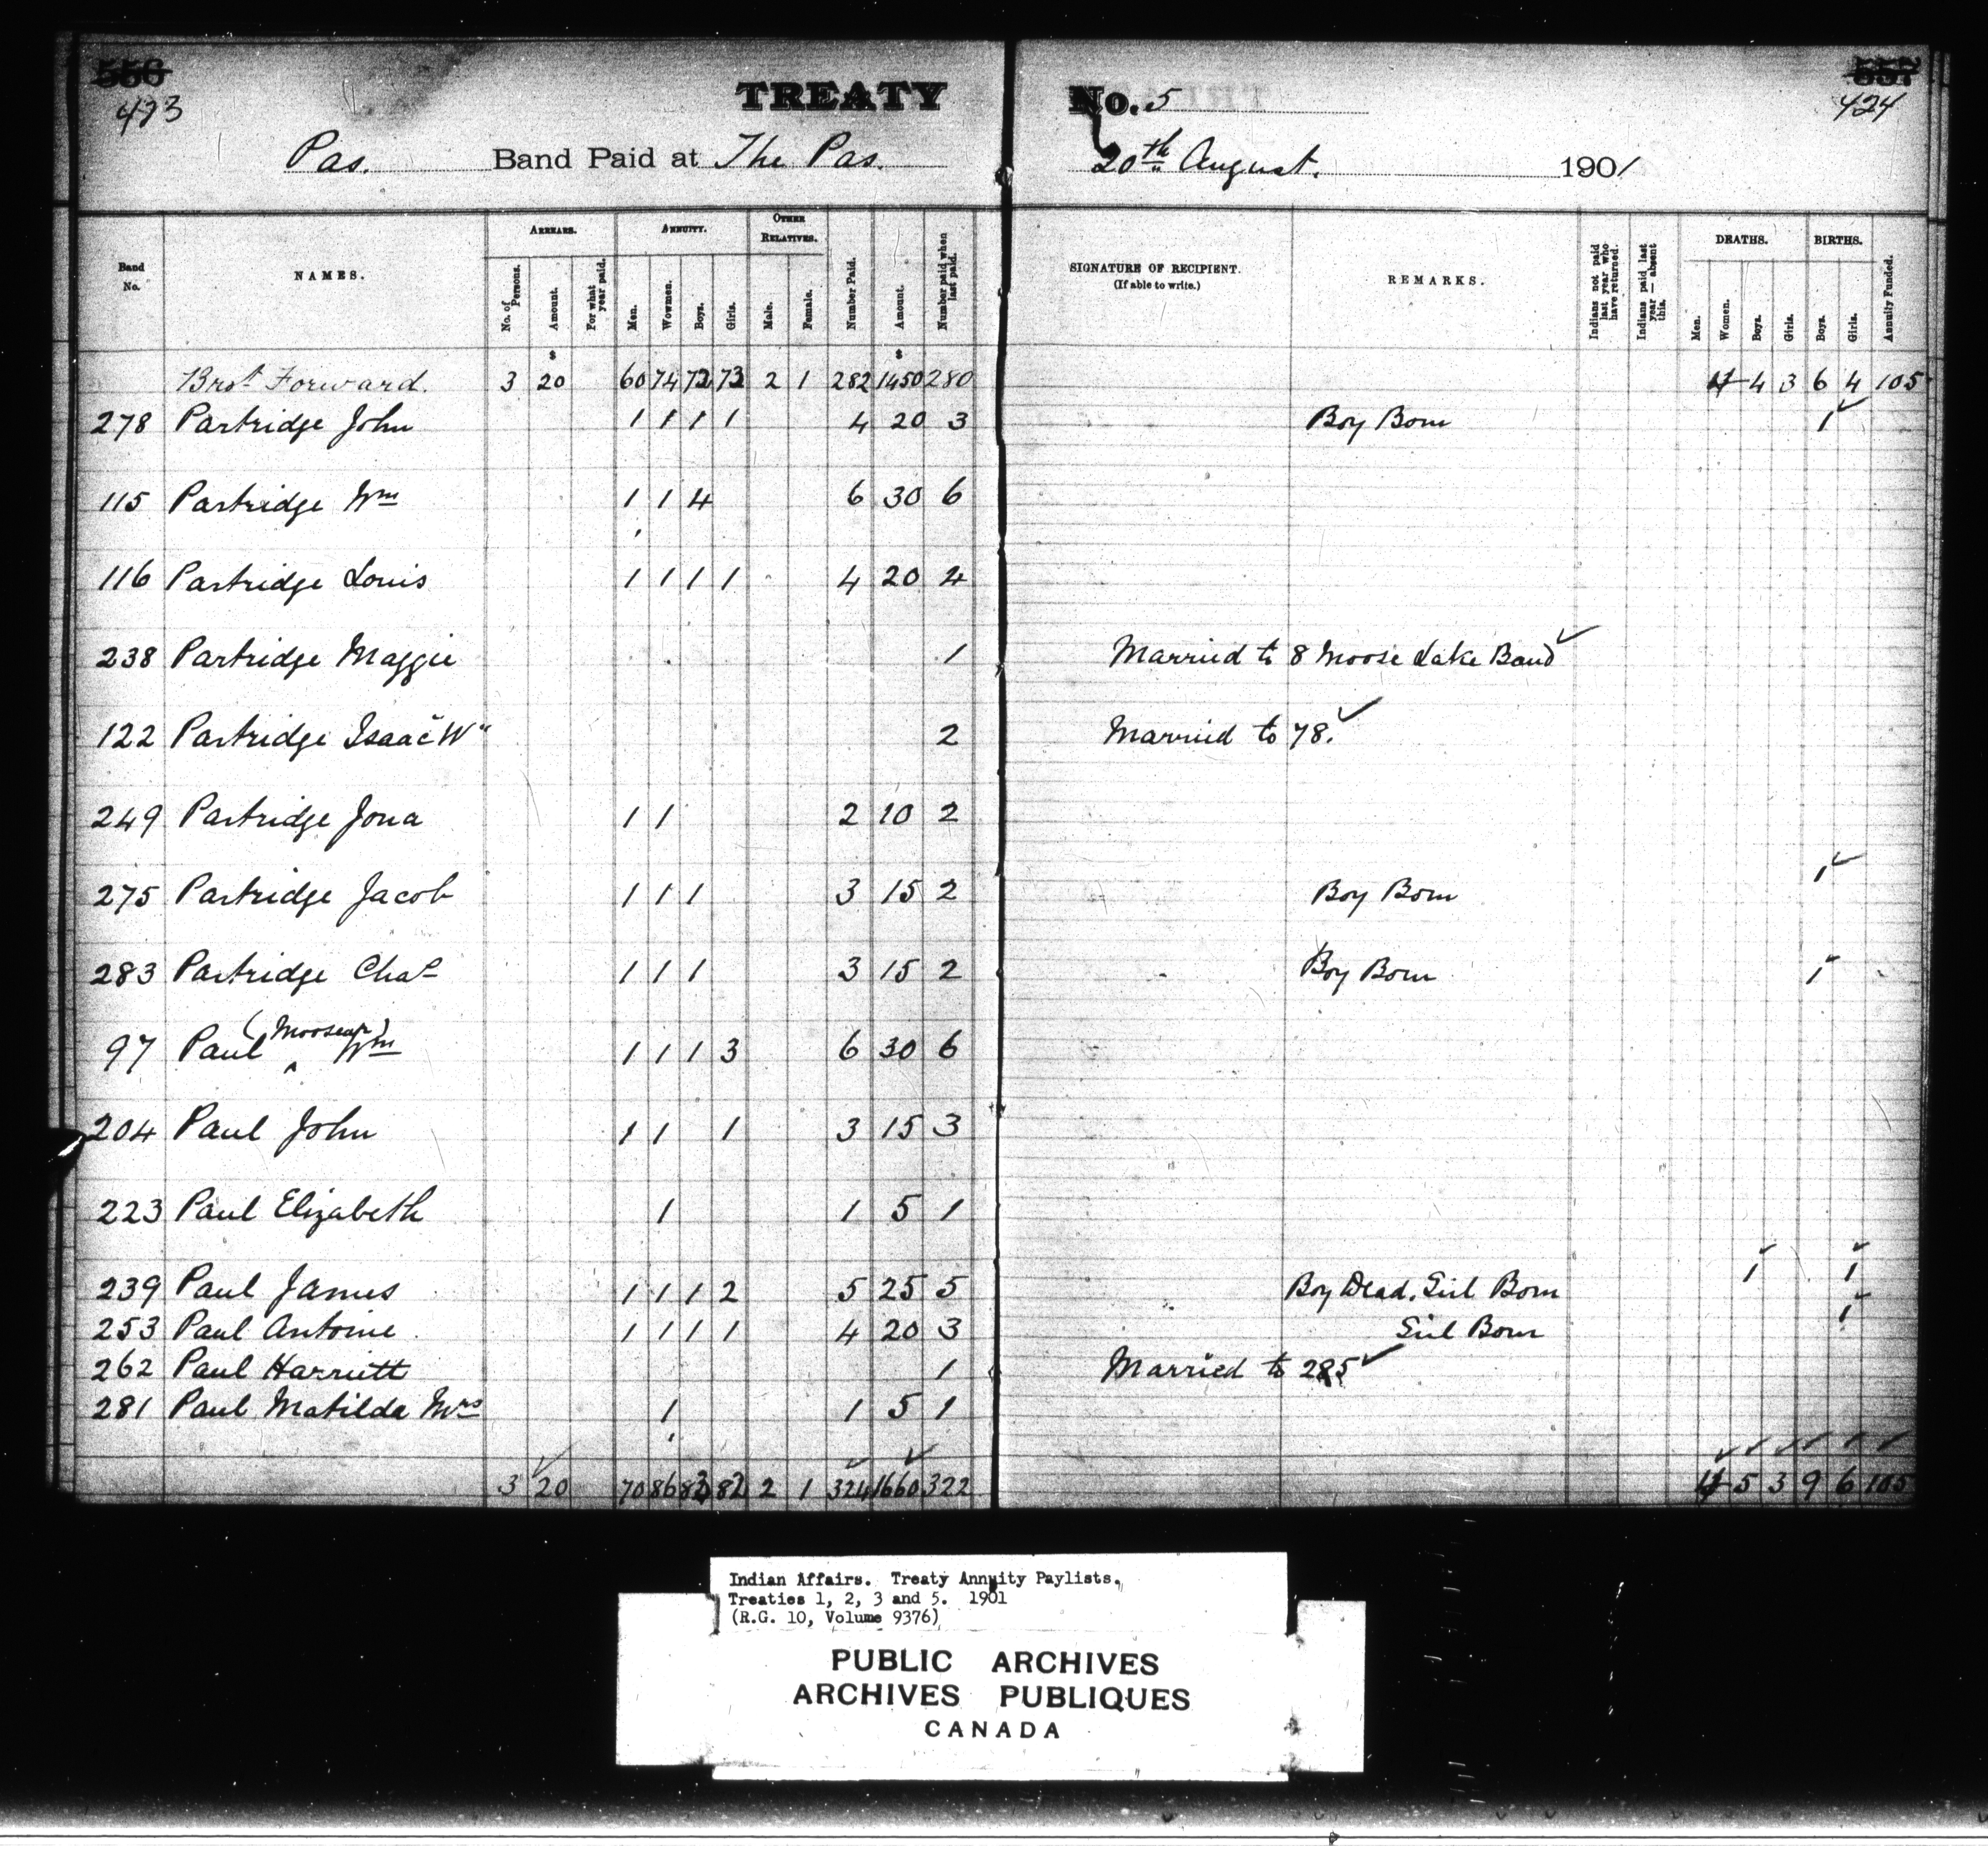 556 TREATY No. 5 557
423 424
Pas. Band Paid at The Pas. 20th August. 1901
Band No. NAMES. ARREARS. No. of Persons. Amount. For what year paid. ANNUITY. Men. Wowmen. Boys. Girls. OTHER RELATIVES. Male. Female. Number Paid. Amount. Number paid when last paid. SIGNATURE OF RECIPIENT. (If able to write.) REMARKS. Indians not paid last year who have returned. Indians paid last year — absent this. DEATHS. Men. Women. Boys. Girls. BIRTHS. Boys. Girls. Annuity Funded.
$ $
Brot Forward. 3 20 60 74 72 73 2 1 282 1450 280 4 3 6 4 105
278 Partridge John 1 1 1 1 4 20 3 Boy Born 1
115 Partridge Wm 1 1 4 6 30 6
116 Partridge Louis 1 1 1 1 4 20 4
238 Partridge Maggie 1 Married to 8 Moose Lake Band
122 Partridge Isaac W" 2 Married to 78.
249 Partridge Jona 1 1 2 10 2
275 Partridge Jacob 1 1 1 3 15 2 Boy Born 1
283 Partridge Chas 1 1 1 3 15 2 Boy Born 1
97 Paul (Moosecap) Wm 1 1 1 3 6 30 6
204 Paul John 1 1 1 3 15 3
223 Paul Elizabeth 1 1 5 1
239 Paul James 1 1 1 2 5 25 5 Boy Dead. Girl Born 1 1
253 Paul Antoine 1 1 1 1 4 20 3 Girl Born 1
262 Paul Harriett 1 Married to 285
281 Paul Matilda Mrs 1 1 5 1
3 20 70 86 83 82 2 1 324 1660 322 5 3 9 6 105
Indian Affairs. Treaty Annuity Paylists.
Treaties 1, 2, 3 and 5. 1901
(R.G. 10, Volume 9376)
PUBLIC ARCHIVES
ARCHIVES PUBLIQUES
CANADA